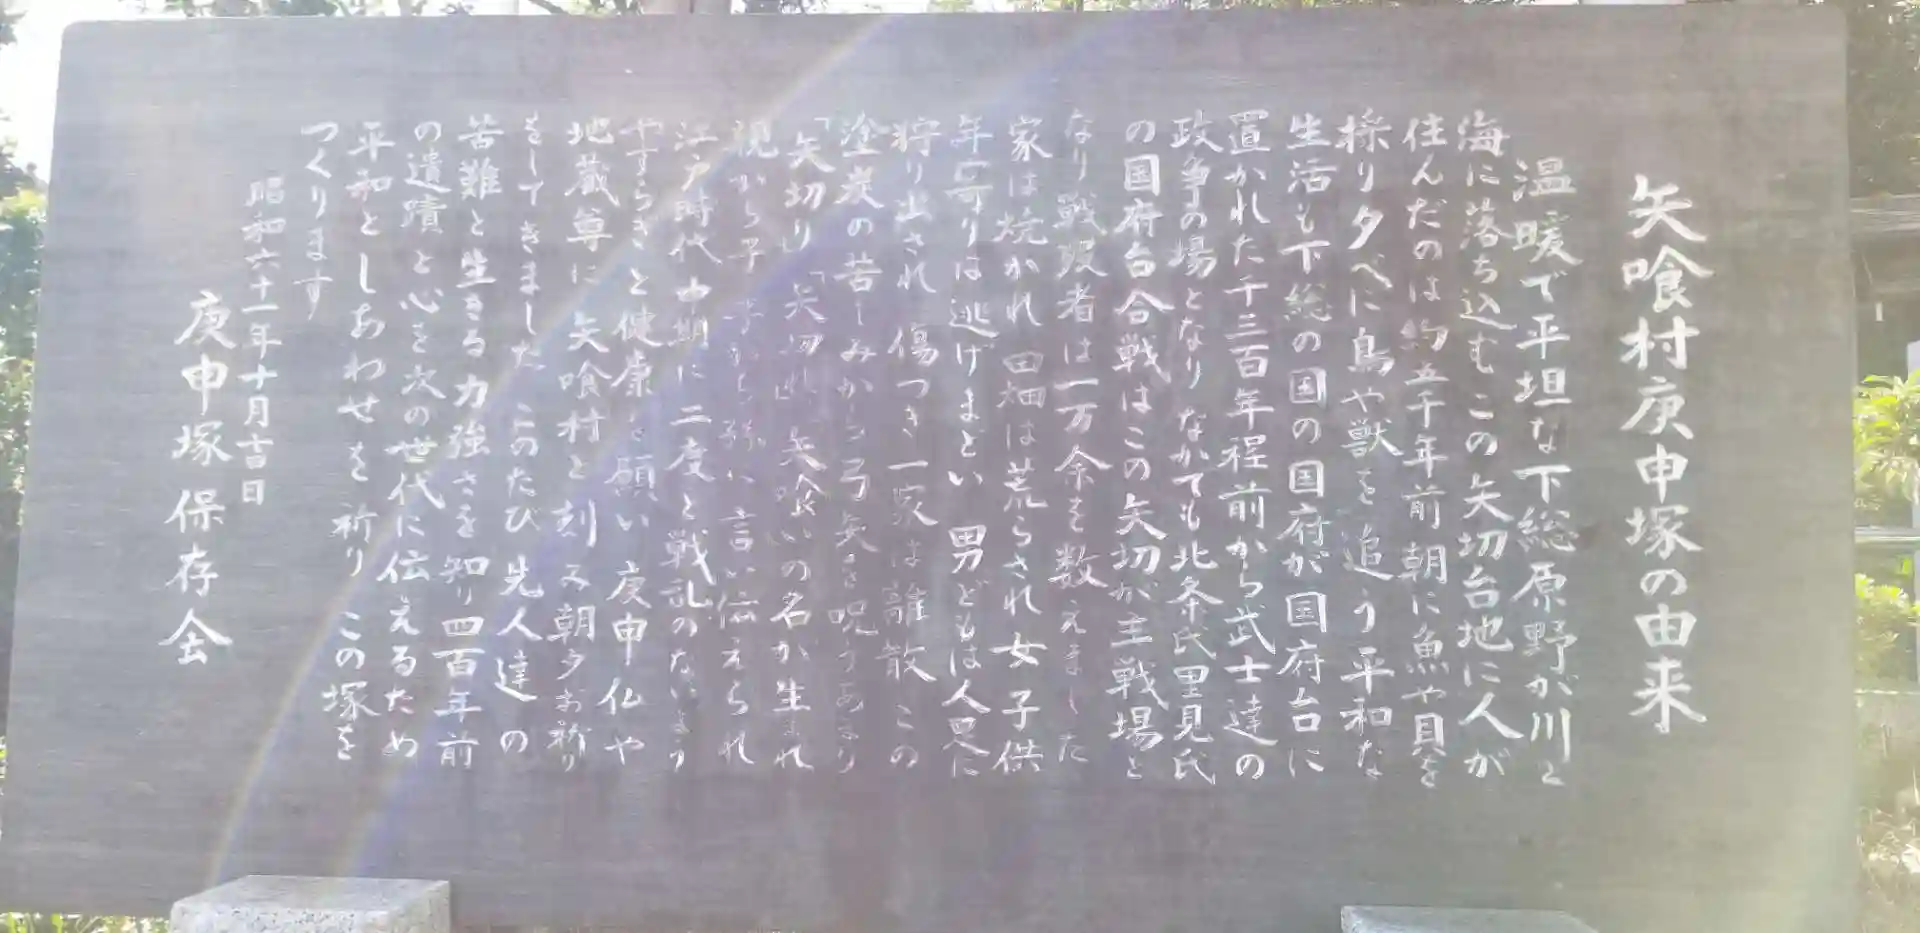 矢喰村庚申塚の由来
温暖で平坦な下総原野が川と
海に落ち込むこの矢切台地に人が
住んだのは約五千年前朝に魚や貝を
採り夕べに鳥や獣を追う平和な
生活も下総の国の国府が国府台に
置かれた千三百年程前から武士達の
政争の場となり なかでも北条氏里見氏
の国府台合戦はこの矢切が主戦場と
なり戦没者は一万余を数えました
家は焼かれ田畑は荒らされ女子供
年寄りは逃げまとい 男どもは人足に
狩り出され 傷つき一家は離散 この
塗炭の苦しみから弓矢を呪うあまり
「矢切り」「矢切れ」矢喰いの名が生まれ
親から子 子から孫へ言い伝えられ
江戸時代中期に二度と戦乱のないよう
やすらぎと健康を願い 庚申仏や
地蔵尊に矢喰村と刻み朝夕お祈り
をしてきました このたび先人達の
苦難と生きる力強さを知り四百年前
の遺蹟と心を次の世代に伝えるため
平和としあわせを祈り この塚を
つくります
昭和六十一年十月吉日
庚申塚保存会